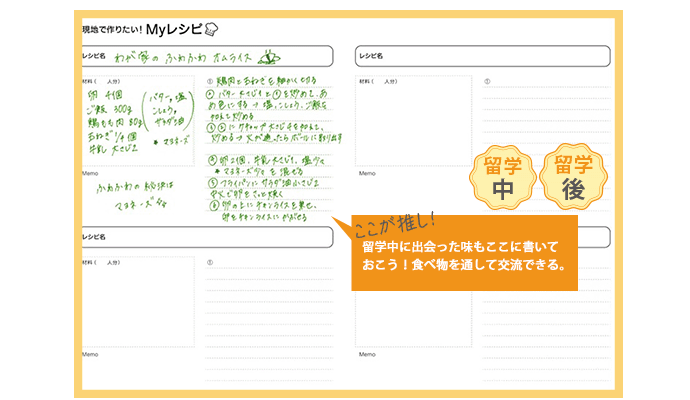 現地で作りたい！Myレシピ
レシピ名 わが家の ふわふわ オムライス
材料（ 人分）
卵 4個
ご飯 300g
鶏もも肉 80g
玉ねぎ 1/4個
牛乳 大さじ2
バター, 塩
こしょう,
サラダ油
* マヨネーズ
Memo
ふわふわの秘訣は
マヨネーズ少々
① 鶏肉と玉ねぎを細かく切る
② バター大さじ1と①を炒めて、あ
め色にする→塩、こしょう、ご飯を
加えて炒める
③ ②にケチャップ大さじ4を加えて、
炒める→火が通ったらボールに取り出す
④ 卵2個、牛乳大さじ1、塩少々
* マヨネーズ少々を混ぜる
⑤ フライパンにサラダ油小さじ2
中火で卵をさっと焼く
⑥ 卵の上にチキンライスを乗せ、
卵をチキンライスにかぶせる
レシピ名
材料（ 人分）
①
Memo
留学
中
留学
後
ここが推し！
留学中に出会った味もここに書いて
おこう！食べ物を通して交流できる。
レシピ名
材料（ 人分）
①
Memo
Memo